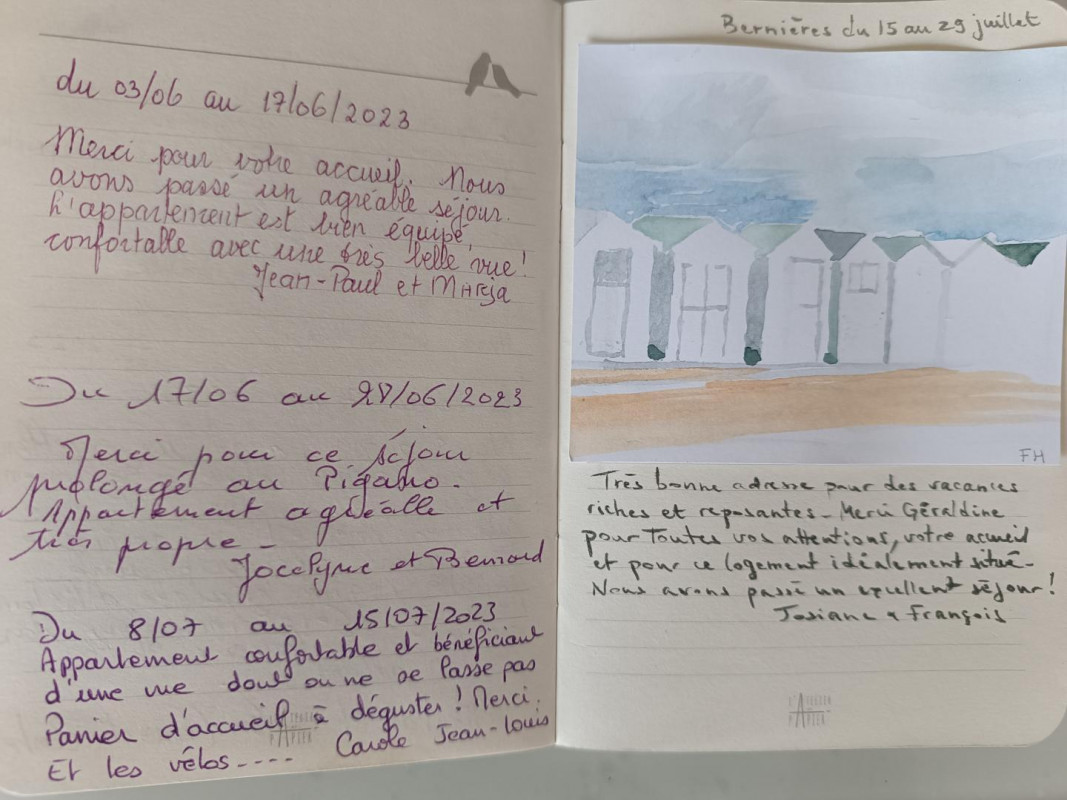 du 03/06 au 17/06/2023
Merci pour votre accueil. Nous
avons passé un agréable séjour.
L'appartement est bien équipé,
confortable avec une très belle vue!
Jean-Paul et Maresa
Du 17/06 au 28/06/2023
Merci pour ce séjour
prolongé au Pigalio.
Appartement agréable et
très propre_
Jocelyne et Bernard
Du 8/07 au 15/07/2023
Appartement confortable et bénéficiant
d'une vue dont on ne se lasse pas
Panier d'accueil à déguster! Merci.
Et les vélos---- Carole Jean-Louis
L'ATELIER
PAPIER
Bernières du 15 au 29 juillet
FH
Très bonne adresse pour des vacances
riches et reposantes_ Merci Géraldine
pour Toutes vos attentions, votre accueil
et pour ce logement idéalement situé_
Nous avons passé un excellent séjour!
Josiane & François
L'ATELIER
PAPIER